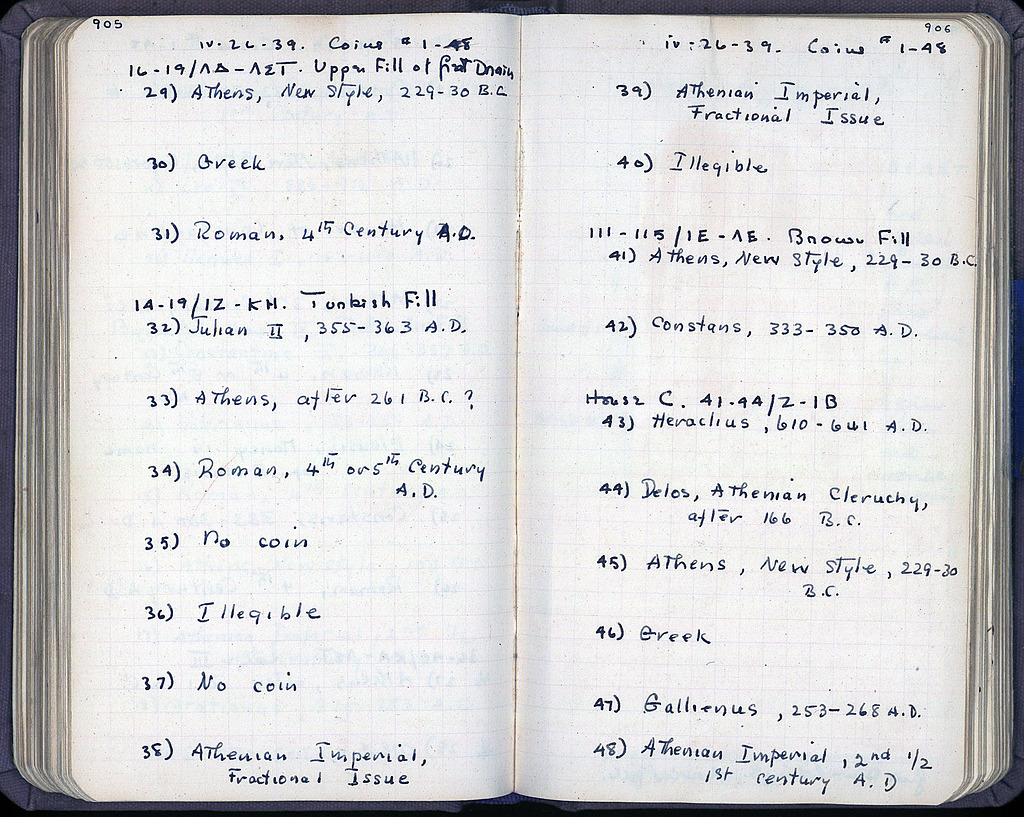 905
iv-26-39. Coins # 1-48
16-19/ΛΔ-ΛΣΤ. Upper Fill of great Drain
29) Athens, New Style, 229-30 B.C.
30) Greek
31) Roman, 4th Century A.D.
14-19/IZ-KH. Turkish Fill
32) Julian II, 355-363 A.D.
33) Athens, after 261 B.C.?
34) Roman, 4th or 5th Century
A.D.
35) No coin
36) Illegible
37) No coin
38) Athenian Imperial,
Fractional Issue
906
iv-26-39. Coins # 1-48
39) Athenian Imperial,
Fractional Issue
40) Illegible
111-115/IE-ΛE. Brown Fill
41) Athens, New Style, 229-30 B.C.
42) Constans, 333-350 A.D.
House C. 41-44/Z-IB
43) Heraclius, 610-641 A.D.
44) Delos, Athenian Cleruchy,
after 166 B.C.
45) Athens, New Style, 229-30
B.C.
46) Greek
47) Gallienus, 253-268 A.D.
48) Athenian Imperial, 2nd 1/2
1st century A.D